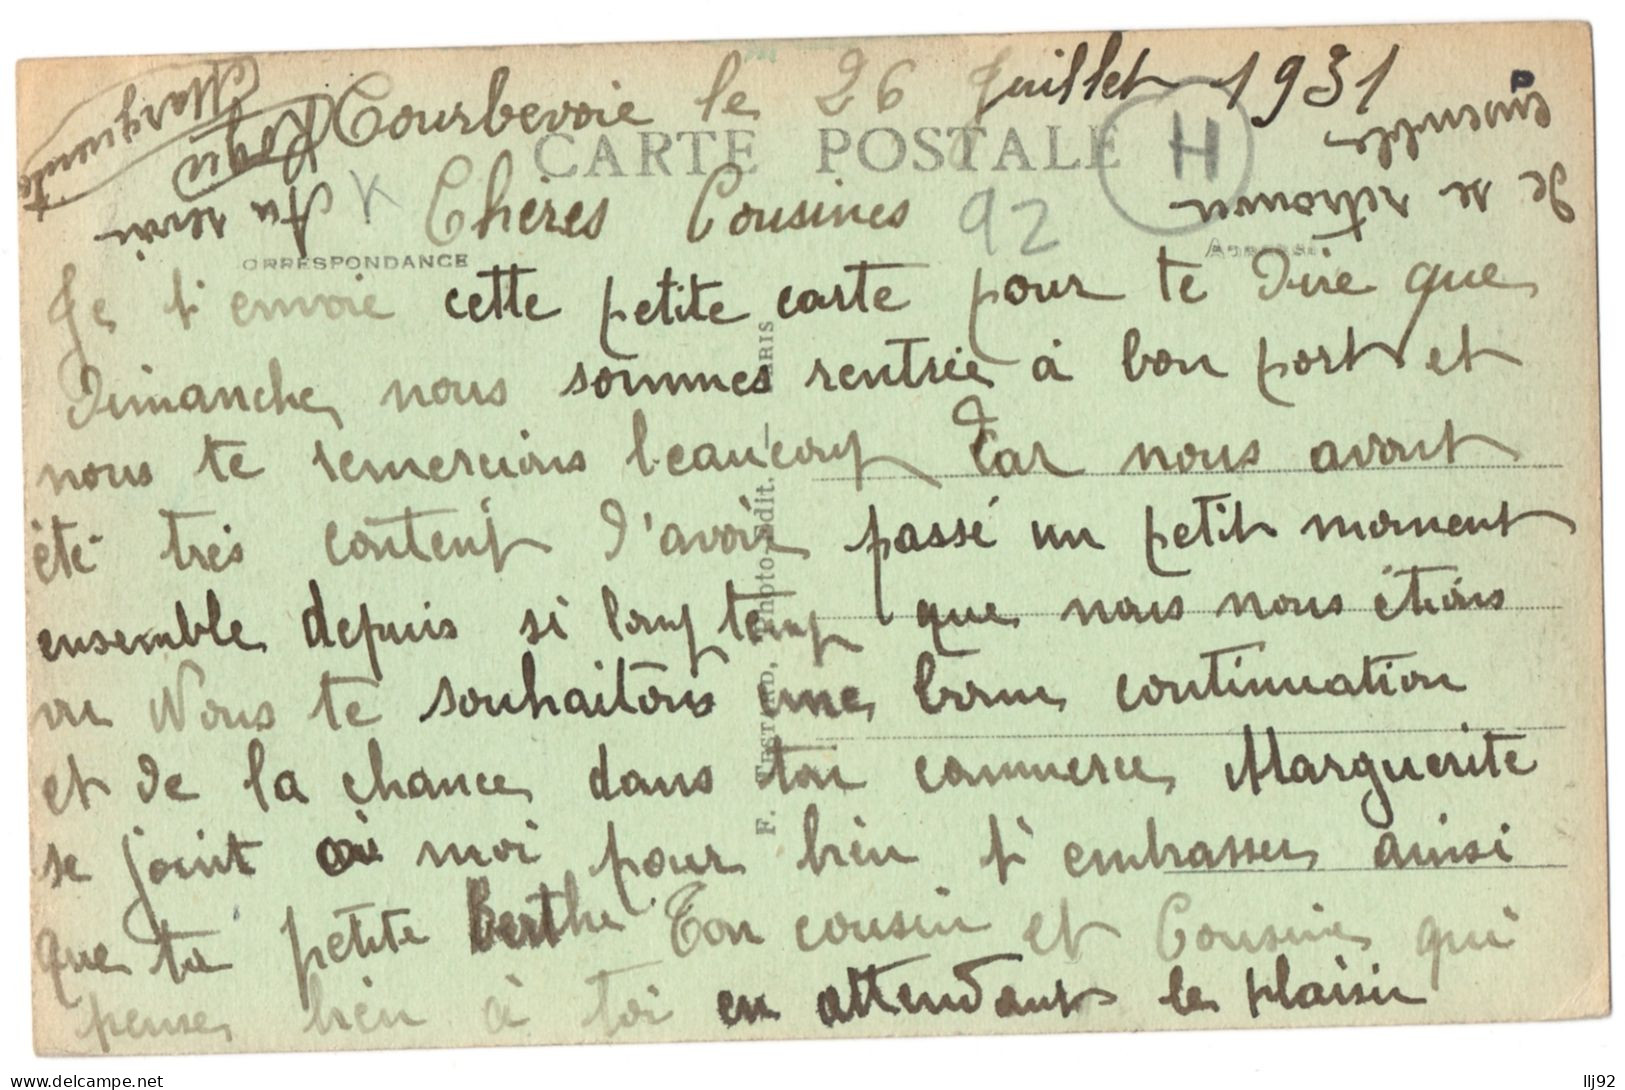 Courbevoie le 26 Juillet 1931
CARTE POSTALE
H
Chères Cousines 92
K
CORRESPONDANCE
ADRESSE
Je t'envoie cette petite carte pour te dire que
Dimanche nous sommes rentrée à bon port et
nous te remercions beaucoup Car nous avont
été très content d'avoir passé un petit moment
ensemble depuis si long temp que nous nous étions
vu Nous te souhaitons une bonne continuation
et de la chance dans ton commerce Marguerite
se joint à moi pour bien t'embrasser ainsi
que ta petite Berthe Ton cousin et Cousine qui
pense bien à toi en attendant le plaisir
de se retrouver
ensemble
Au revoir
Roger
Marguerite
F. TESTARD, Photo-Edit. — PARIS
llj92